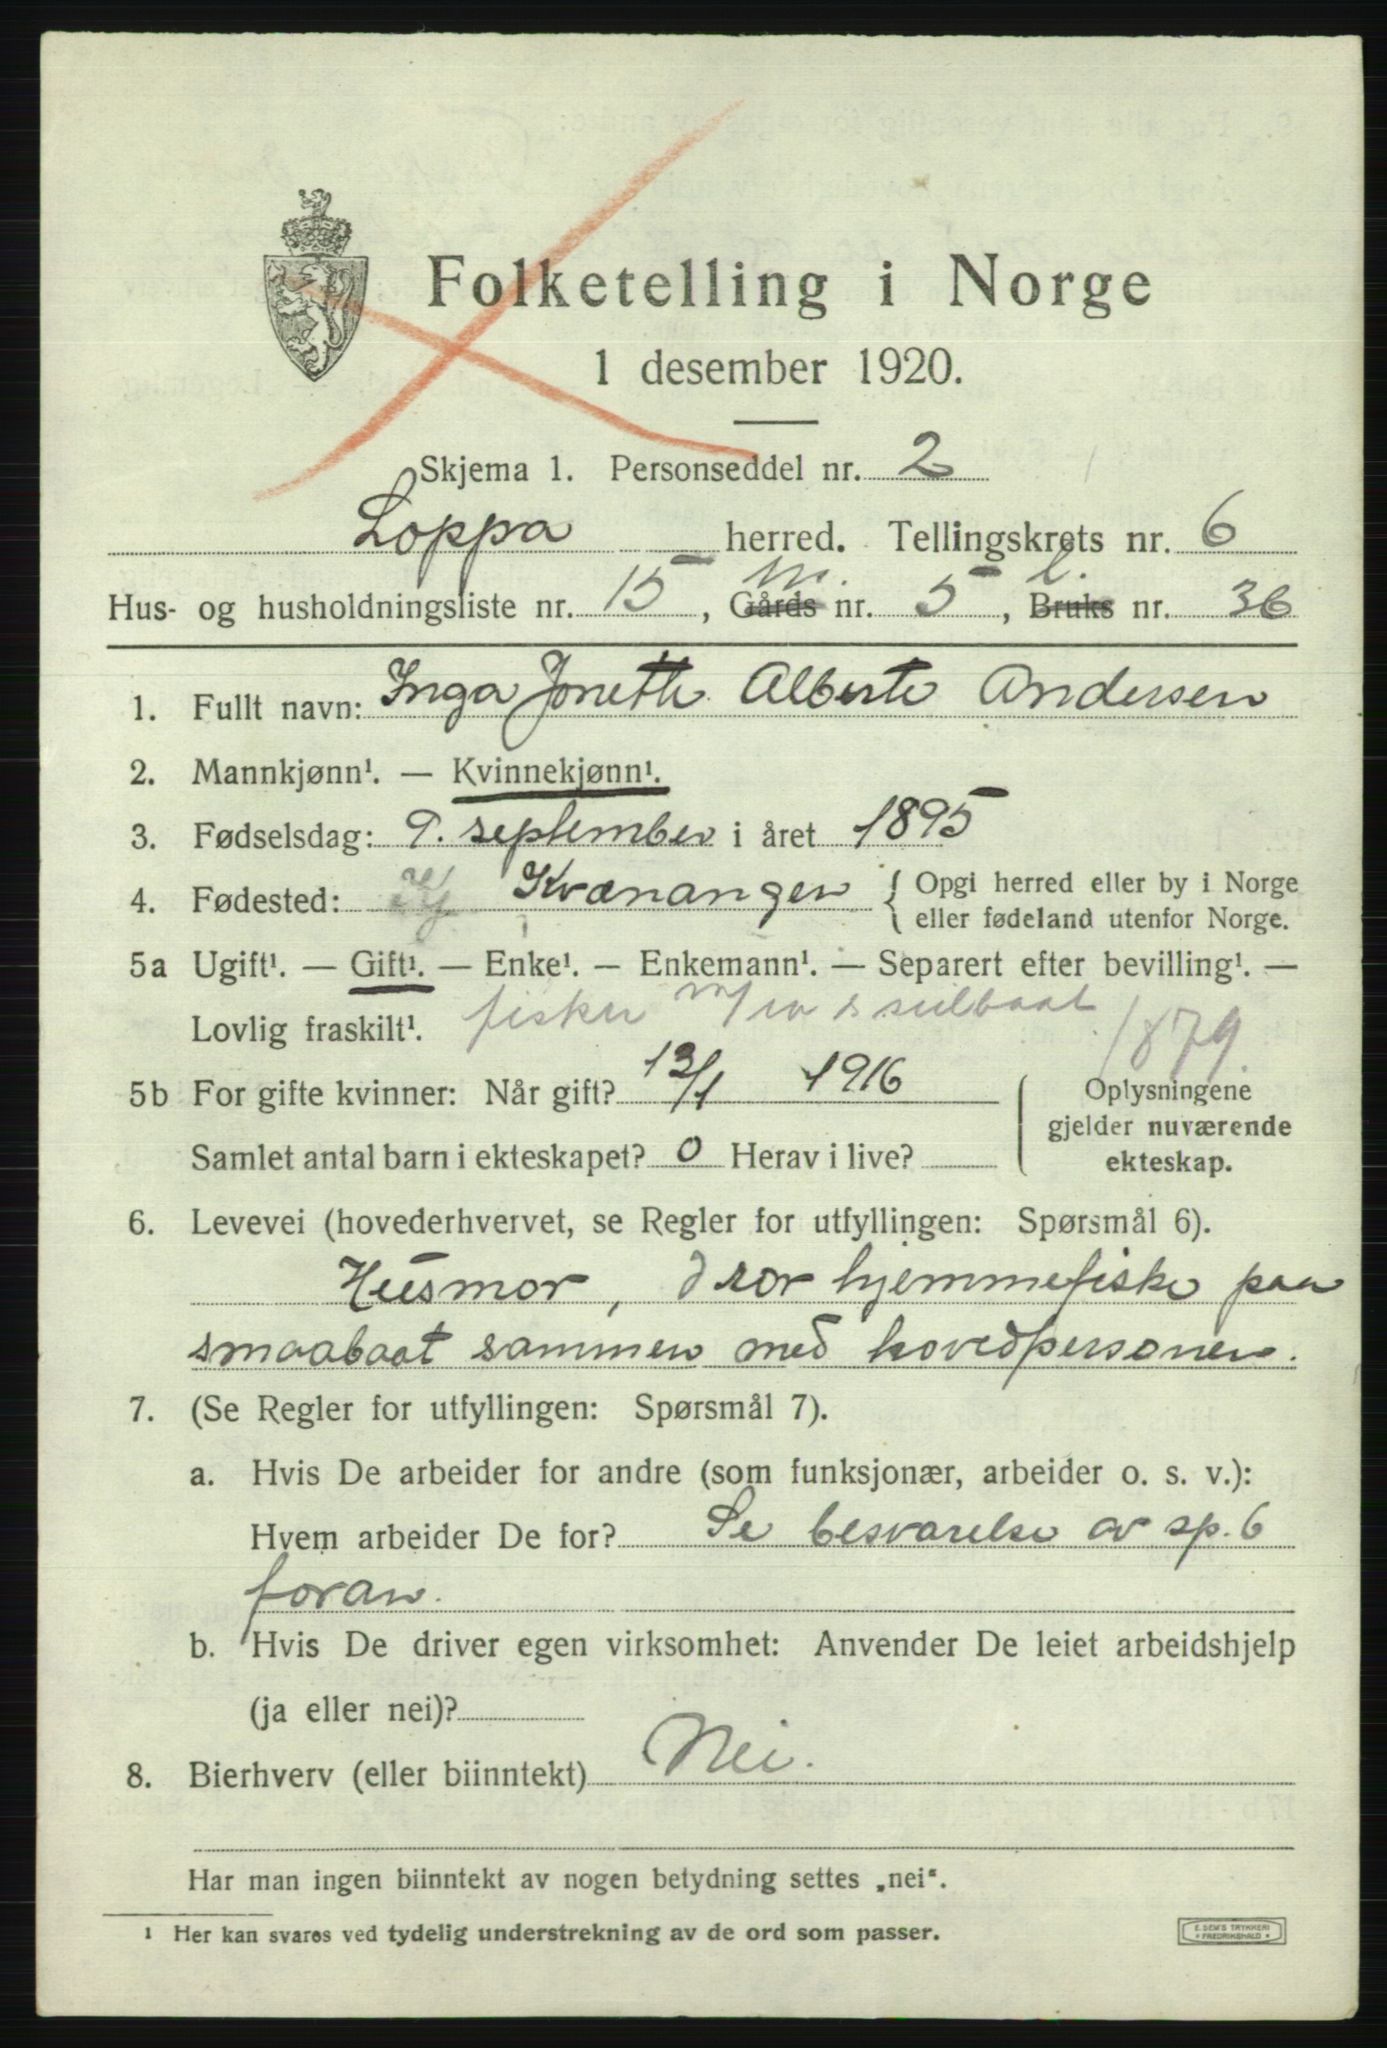 Folketelling i Norge
1 desember 1920.
Skjema 1. Personseddel nr. 2
Loppa herred. Tellingskrets nr. 6
m. l.
Hus- og husholdningsliste nr. 15, Gårds nr. 5, Bruks nr. 36
1. Fullt navn: Inga Jonette Alberte Andersen
2. Mannkjønn¹. — Kvinnekjønn¹.
3. Fødselsdag: 9. september i året 1895
4. Fødested: Kvænangen { Opgi herred eller by i Norge
eller fødeland utenfor Norge.
5a Ugift¹. — Gift¹. — Enke¹. — Enkemann¹. — Separert efter bevilling¹. —
Lovlig fraskilt¹. fisker 1879
5b For gifte kvinner: Når gift? 13/1 1916
Samlet antal barn i ekteskapet? 0 Herav i live?
Oplysningene
gjelder nuværende
ekteskap.
6. Levevei (hovederhvervet, se Regler for utfyllingen: Spørsmål 6).
Husmor, dror hjemmefiske paa
smaabaat sammen med hovedpersonen.
7. (Se Regler for utfyllingen: Spørsmål 7).
a. Hvis De arbeider for andre (som funksjonær, arbeider o. s. v.):
Hvem arbeider De for? Se besvarelse av sp. 6
foran.
b. Hvis De driver egen virksomhet: Anvender De leiet arbeidshjelp
(ja eller nei)?
8. Bierhverv (eller biinntekt) Nei.
Har man ingen biinntekt av nogen betydning settes „nei“.
¹ Her kan svares ved tydelig understrekning av de ord som passer.
E. SEM'S TRYKKERI
* FREDRIKSHALD *